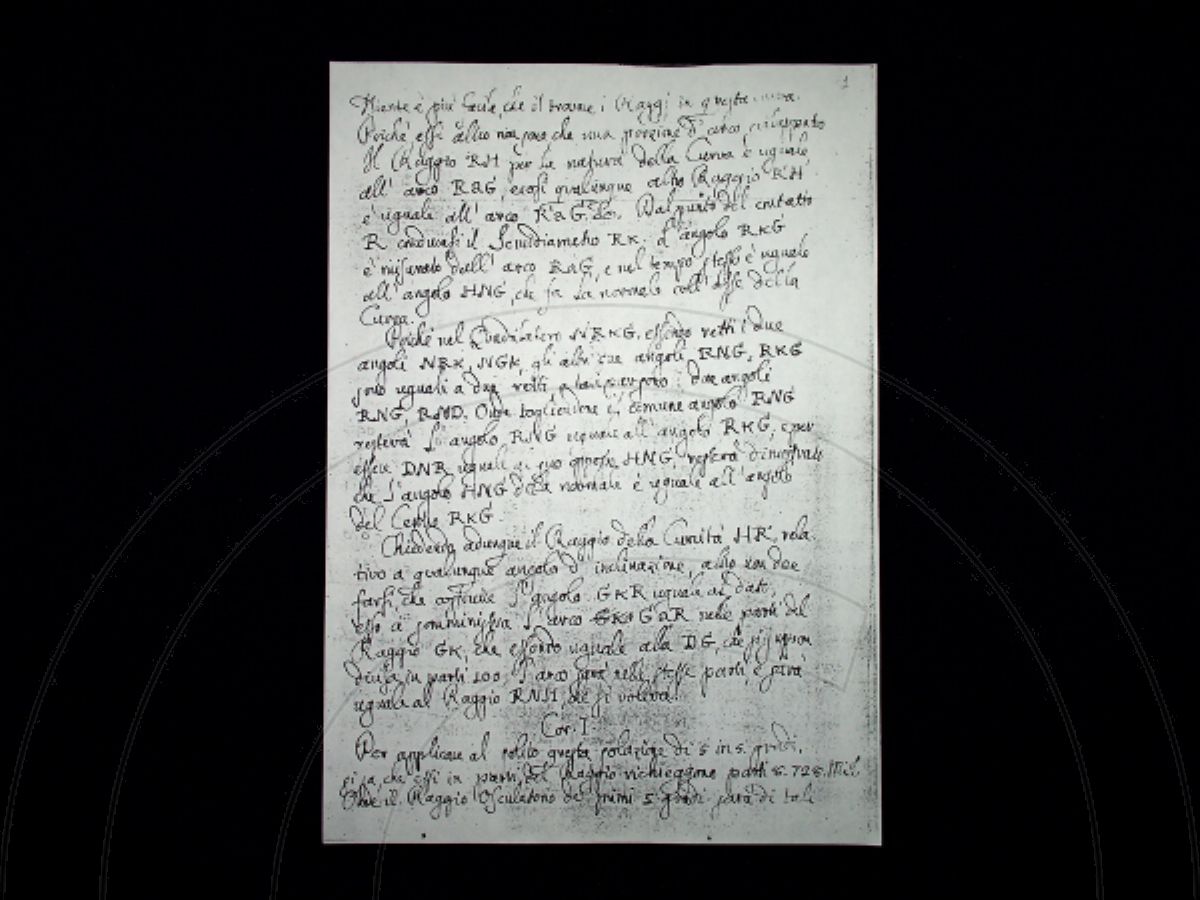 1
Niente è piu facile, che il trovare i Raggi in questa curva.
Poiche essi altro non sono, che una porzione d'arco, sviluppato
Il Raggio RH per la natura della Curva è uguale
all' arco RaG, e cosi qualunque altro Raggio RH
è uguale all' arco RaG. &c. Dal punto del contatto
R conducasi il Semidiametro RK. L'angolo RKG
è misurato dall' arco RaG, e nel tempo stesso è uguale
all' angolo HNG, che fa la normale coll' asse della
Curva.
Poiche nel Quadrilatero NRKG, essendo retti i due
angoli NRK, NGK, gli altri due angoli RNG, RKG
sono uguali a due retti, e lo sono i due angoli
RNG, RND. Onde togliendone il comune angolo RNG
resterà l'angolo RNG uguale all' angolo RKG, e per
essere DNR uguale al suo opposto HNG, resterà dimostrato
che l'angolo HNG della normale è uguale all' angolo
del Centro RKG.
Chiedendo adunque il Raggio della Curvità HR, rela
tivo a qualunque angolo d' inclinazione, altro non dee
farsi, che costruire l'angolo GKR uguale al dato,
esso ci somministra l' arco GaR nelle parti del
Raggio GK, che essendo uguale alla DG, che si suppon
divisa in parti 100. L'arco sarà nelle stesse parti, e sarà
uguale al Raggio RNH, che si voleva.
Cor. I.
Per applicare al solito questa solazione di 5 in 5. gradi,
si sa, che essi in parti del Raggio richieggono parti 8. 728. Mil
Onde il Raggio Osculatorio de' primi 5 gradi sarà di tali